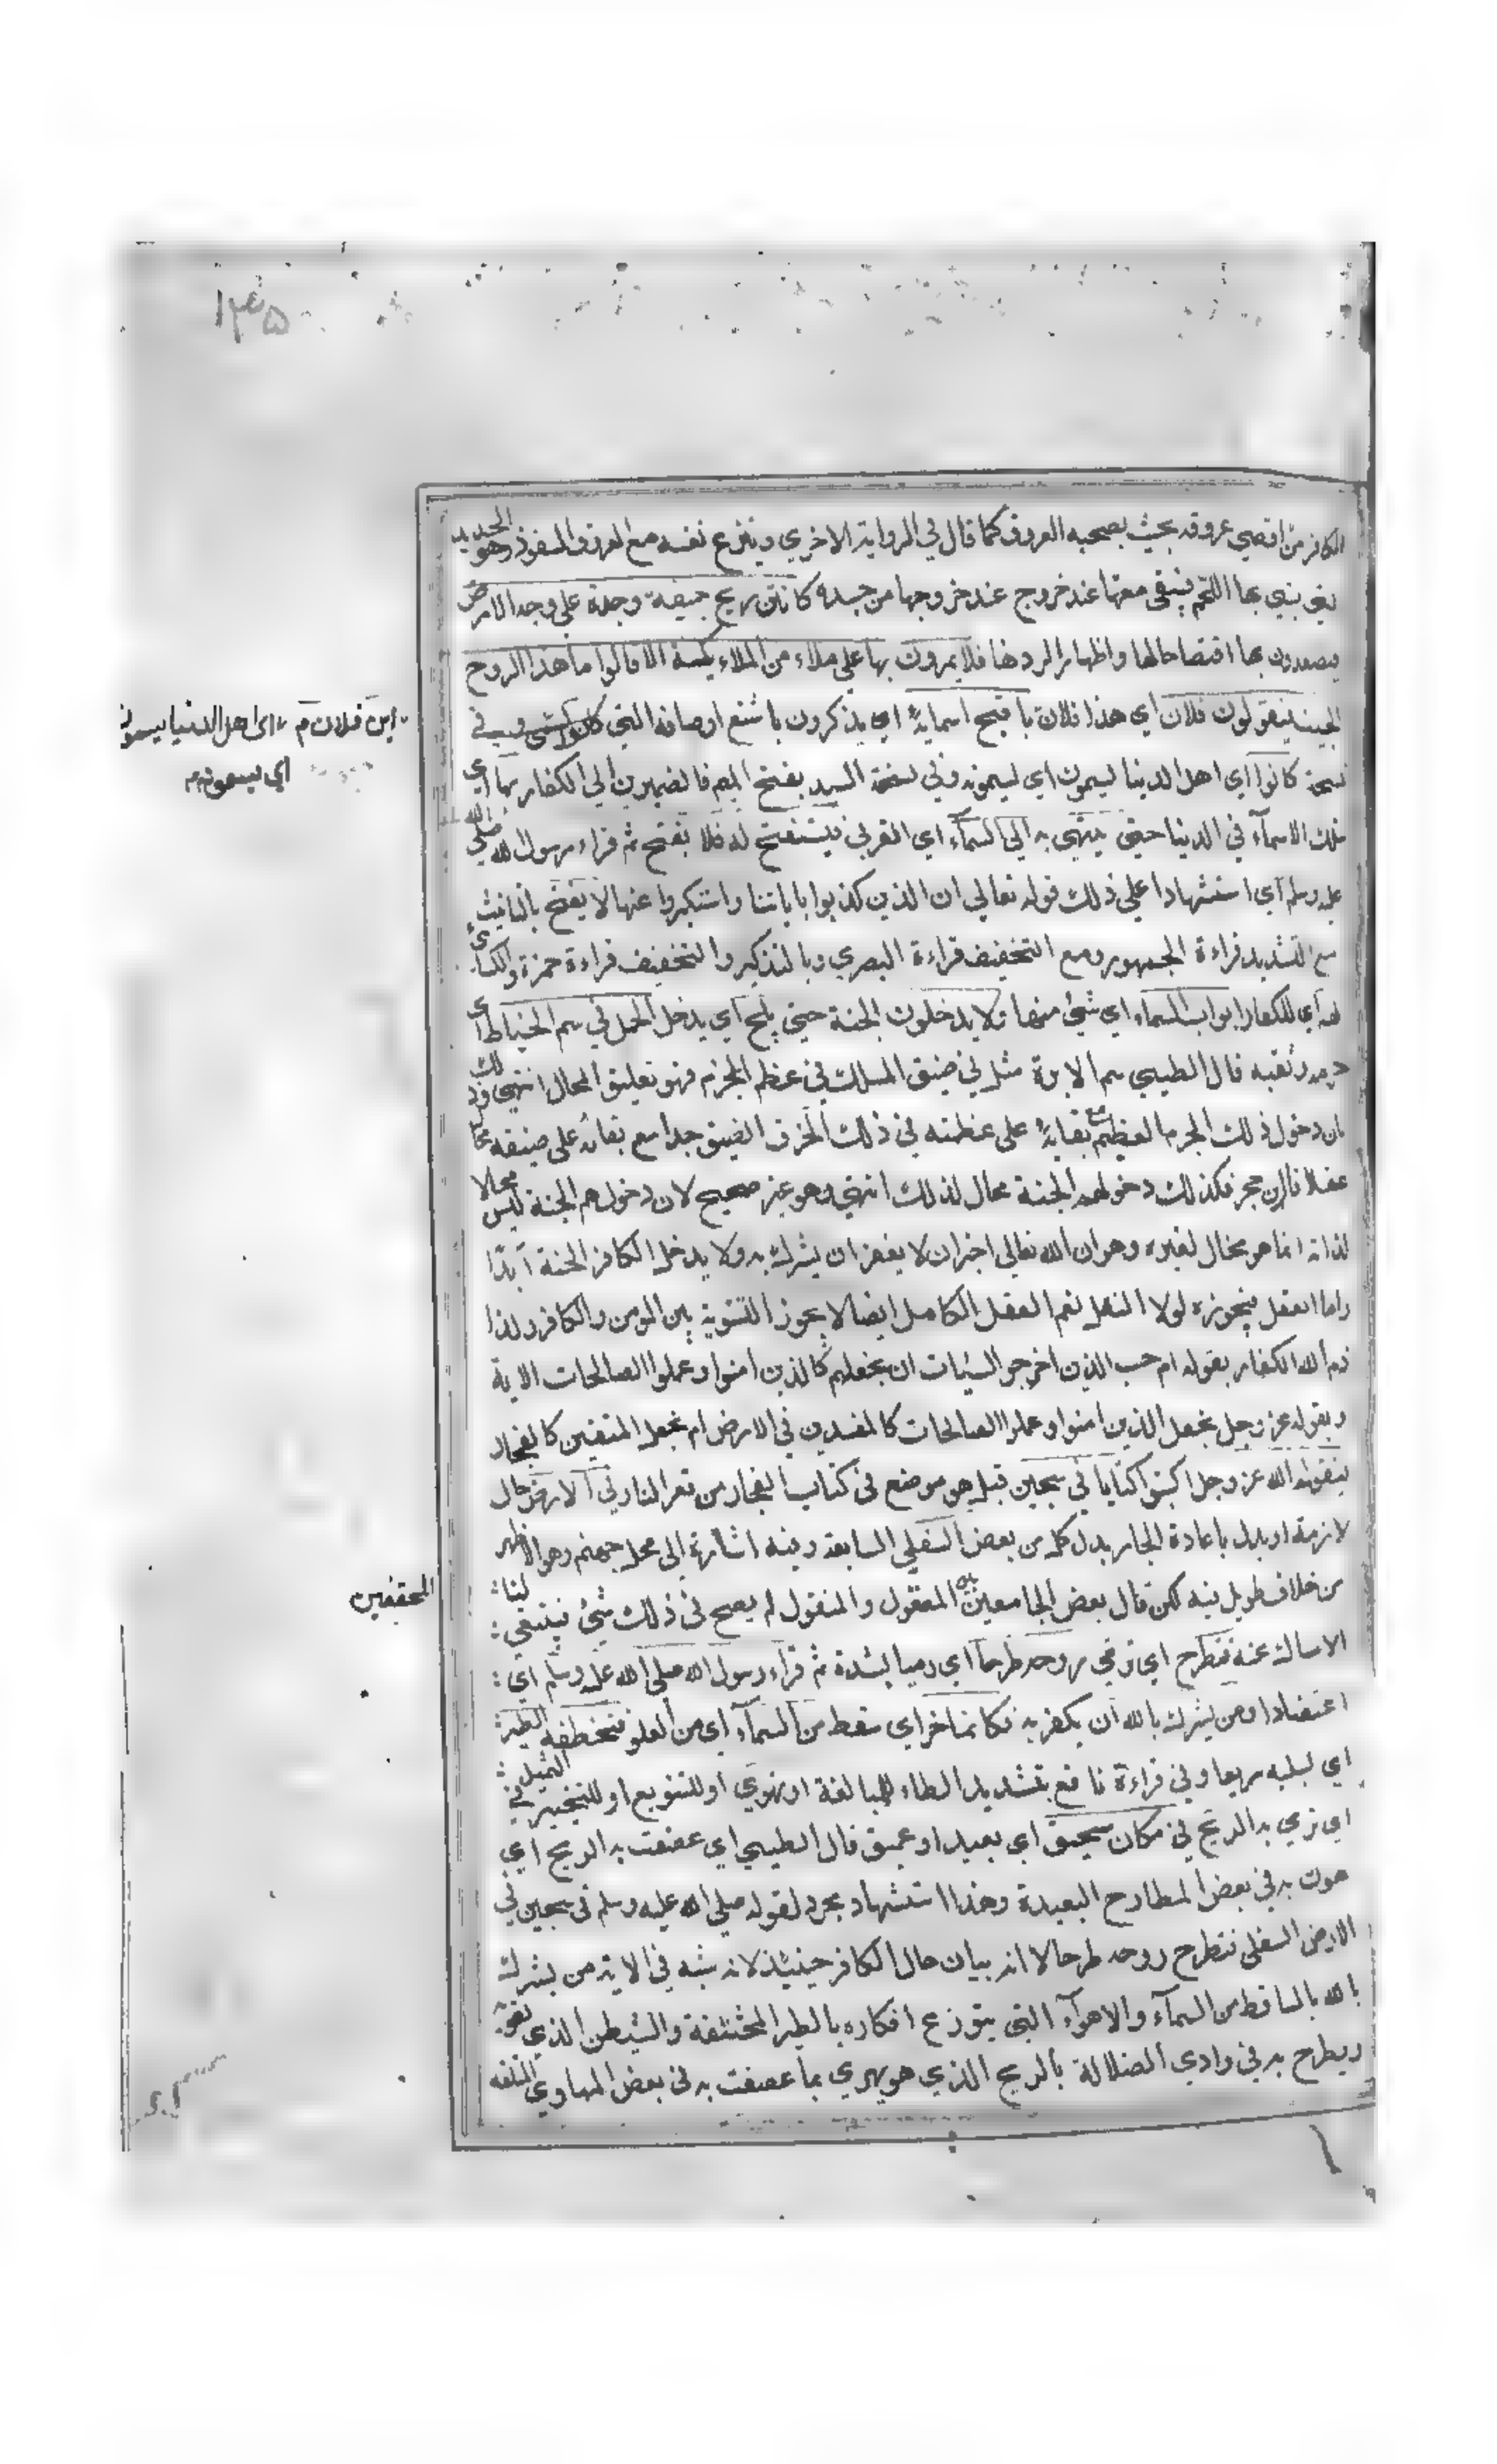 ١٣٥
الكافر من اقصي عروقه بحيث يصحبه العروق كما قال في الرواية الاخري وينزع نفسه مع العروق والسفود وهو الحديد
بها اللحم فيبقى معها عند خروج عند خروجها من جسده كانتن ريح جيفة وجدة على وجه الارض
فيصعدون بها افتضاحا لها واظهارا لردها فلا يمرون بها على ملاء من الملاء يكة الا قالوا ما هذا الروح
الخبيث فيقولون فلان اي هذا فلان باقبح اسمايه اي يذكرون باشنع اوصافه التي كانوا وفي
نسخة كانوا اي اهل الدنيا ليسمون اي ليسمونه وفي نسخة السيد بفتح الميم فالضميرين الي الكفار بها اي
تلك الاسمآء في الدنيا حتى ينتهي به الي السمآء اي القربى فيستفتح له فلا يفتح ثم قراء رسول الله صلى الله
عليه وسلم اي استشهادا على ذلك قوله تعالي ان الذين كذبوا باياتنا واستكبروا عنها لا يفتح بالتانيث
مع التشديد قراءة الجمهور ومع التخفيف قراءة البصري وبالتذكير والتخفيف قراءة حمزة والكسائي
لهم اي للكفار ابواب السماء اي شئ منها ولا يدخلون الجنة حتى يلج اي يدخل الجمل في سم الخياط اي
وثقبه قال الطيبي سم الابرة مثل في ضيق المسلك في عظم الجرم فهو تعليق المحال انتهي وذلك
بان دخول ذلك الجرم العظيم مع بقايه على عظمته في ذلك الخرق الضيق جدا مع بقائه على ضيقه محال
عقلا قال ابن حجر فكذلك دخولهم الجنة محال لذلك انتهى وهو غير صحيح لان دخولهم الجنة ليس محالا
لذاته انما هو محال لغيره وهو ان الله تعالي اخبر ان لا يغفر ان يشرك به ولا يدخل الكافر الجنة ابدا
واما العقل فيجوزه لولا النقل نعم العقل الكامل ايضا لا يجوز التسوية بين المومن والكافر ولذا
ذم الله الكفار بقوله ام حسب الذين اخرجوا السيات ان نجعلهم كالذين امنوا وعملوا الصالحات الاية
وبقوله عز وجل نجعل الذين امنوا وعملوا الصالحات كالمفسدين في الارض ام نجعل المتقين كالفجار
فيقول الله عز وجل اكتبوا كتابا في سجين قيل هو موضع فى كتاب الفجار من قعر النار في الارض حال
لازمة او بدل باعادة الجار بدل كل من بعض السفلي السابعة وفيه اشارة الى محل جهنم وهو الاظهر
من خلاف طويل فيه لكن قال بعض الجامعين بين المعقول والمنقول لم يصح فى ذلك شئ فينبغي لنا
الامساك عنه فتطرح اي ترمى روحه طرحا اي رميا بشدة ثم قرآء رسول الله صلى الله عليه وسلم اي
اعتضادا ومن يشرك بالله ان يكفر به فكانما خر اي سقط من السمآء اي من العلو فتخطفه الطير
اي ليسلبه سريعا وفي قراءة نافع بتشديد الطاء للمبالغة او تهوي او للتنويع او للتخيير في التمثيل
اي ترمي به الريح في مكان سحيق اي بعيد او عميق قال الطيبي اي عصفت به الريح اي
هوت به في بعض المطارح البعيدة وهذا استشهاد مجرد لقوله صلى الله عليه وسلم فى سجين في
الارض السفلى فتطرح روحه طرحا لا انه بيان حال الكافر حينئذ لانه شبه في الاية من يشرك
بالله بالساقط من السمآء والاهوآء التي يتوزع افكاره بالطير المختطفة والشيطن الذي
ويطرح به في وادي الضلالة بالريح الذي هو يهوي بما عصفت به فى بعض المهاوي المتلفه
اين فلان م اى اهل الدنيا يسمون
اي يسمونه
المحققين